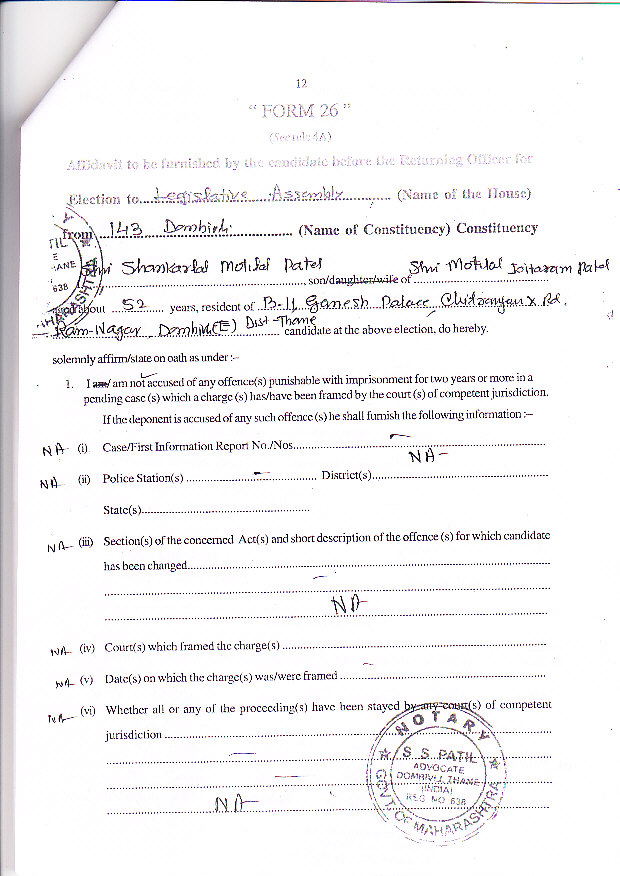 12
“ FORM 26 ”
(See rule 4A)
Affidavit to be furnished by the candidate before the Returning Officer for
Election to....Legislative Assembly..... (Name of the House)
from 143 Dombivli (Name of Constituency) Constituency
Shri Shankarlal Motilal Patel, son/daughter/wife of Shri Motilal Joitaram Patel
aged about 52 years, resident of B-11 Ganesh Palace, Rd.
Ram-Nagar Dombivli(E) Dist-Thane candidate at the above election, do hereby.
solemnly affirm/state on oath as under :–
1. I am/ am not accused of any offence(s) punishable with imprisonment for two years or more in a
pending case (s) which a charge (s) has/have been framed by the court (s) of competent jurisdiction.
If the deponent is accused of any such offence (s) he shall furnish the following information :–
NA (i) Case/First Information Report No./Nos.
NA
NA (ii) Police Station(s) District(s)
State(s)
NA (iii) Section(s) of the concerned Act(s) and short description of the offence (s) for which candidate
has been changed
NA
NA (iv) Court(s) which framed the charge(s)
NA (v) Date(s) on which the charge(s) was/were framed
NA (vi) Whether all or any of the proceeding(s) have been stayed by any court(s) of competent
jurisdiction
NA
NOTARY
S S PATIL
ADVOCATE
DOMBIVLI, THANE
(INDIA)
REG NO 638
GOVT OF MAHARASHTRA